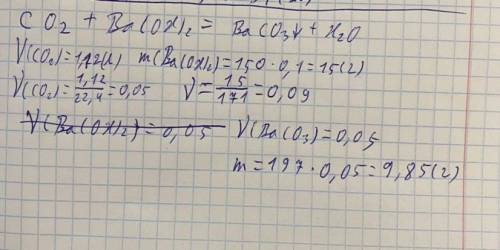 CO₂ + Ba(OH)₂ = BaCO₃↓ + H₂O
V(CO₂)=1,12(л) m(Ba(OH)₂)=150·0,1=15(г)
V(CO₂)=1,12/22,4=0,05 V=15/171=0,09
V(Ba(OH)₂)=0,05 V(BaCO₃)=0,05
m=197·0,05=9,85(г)